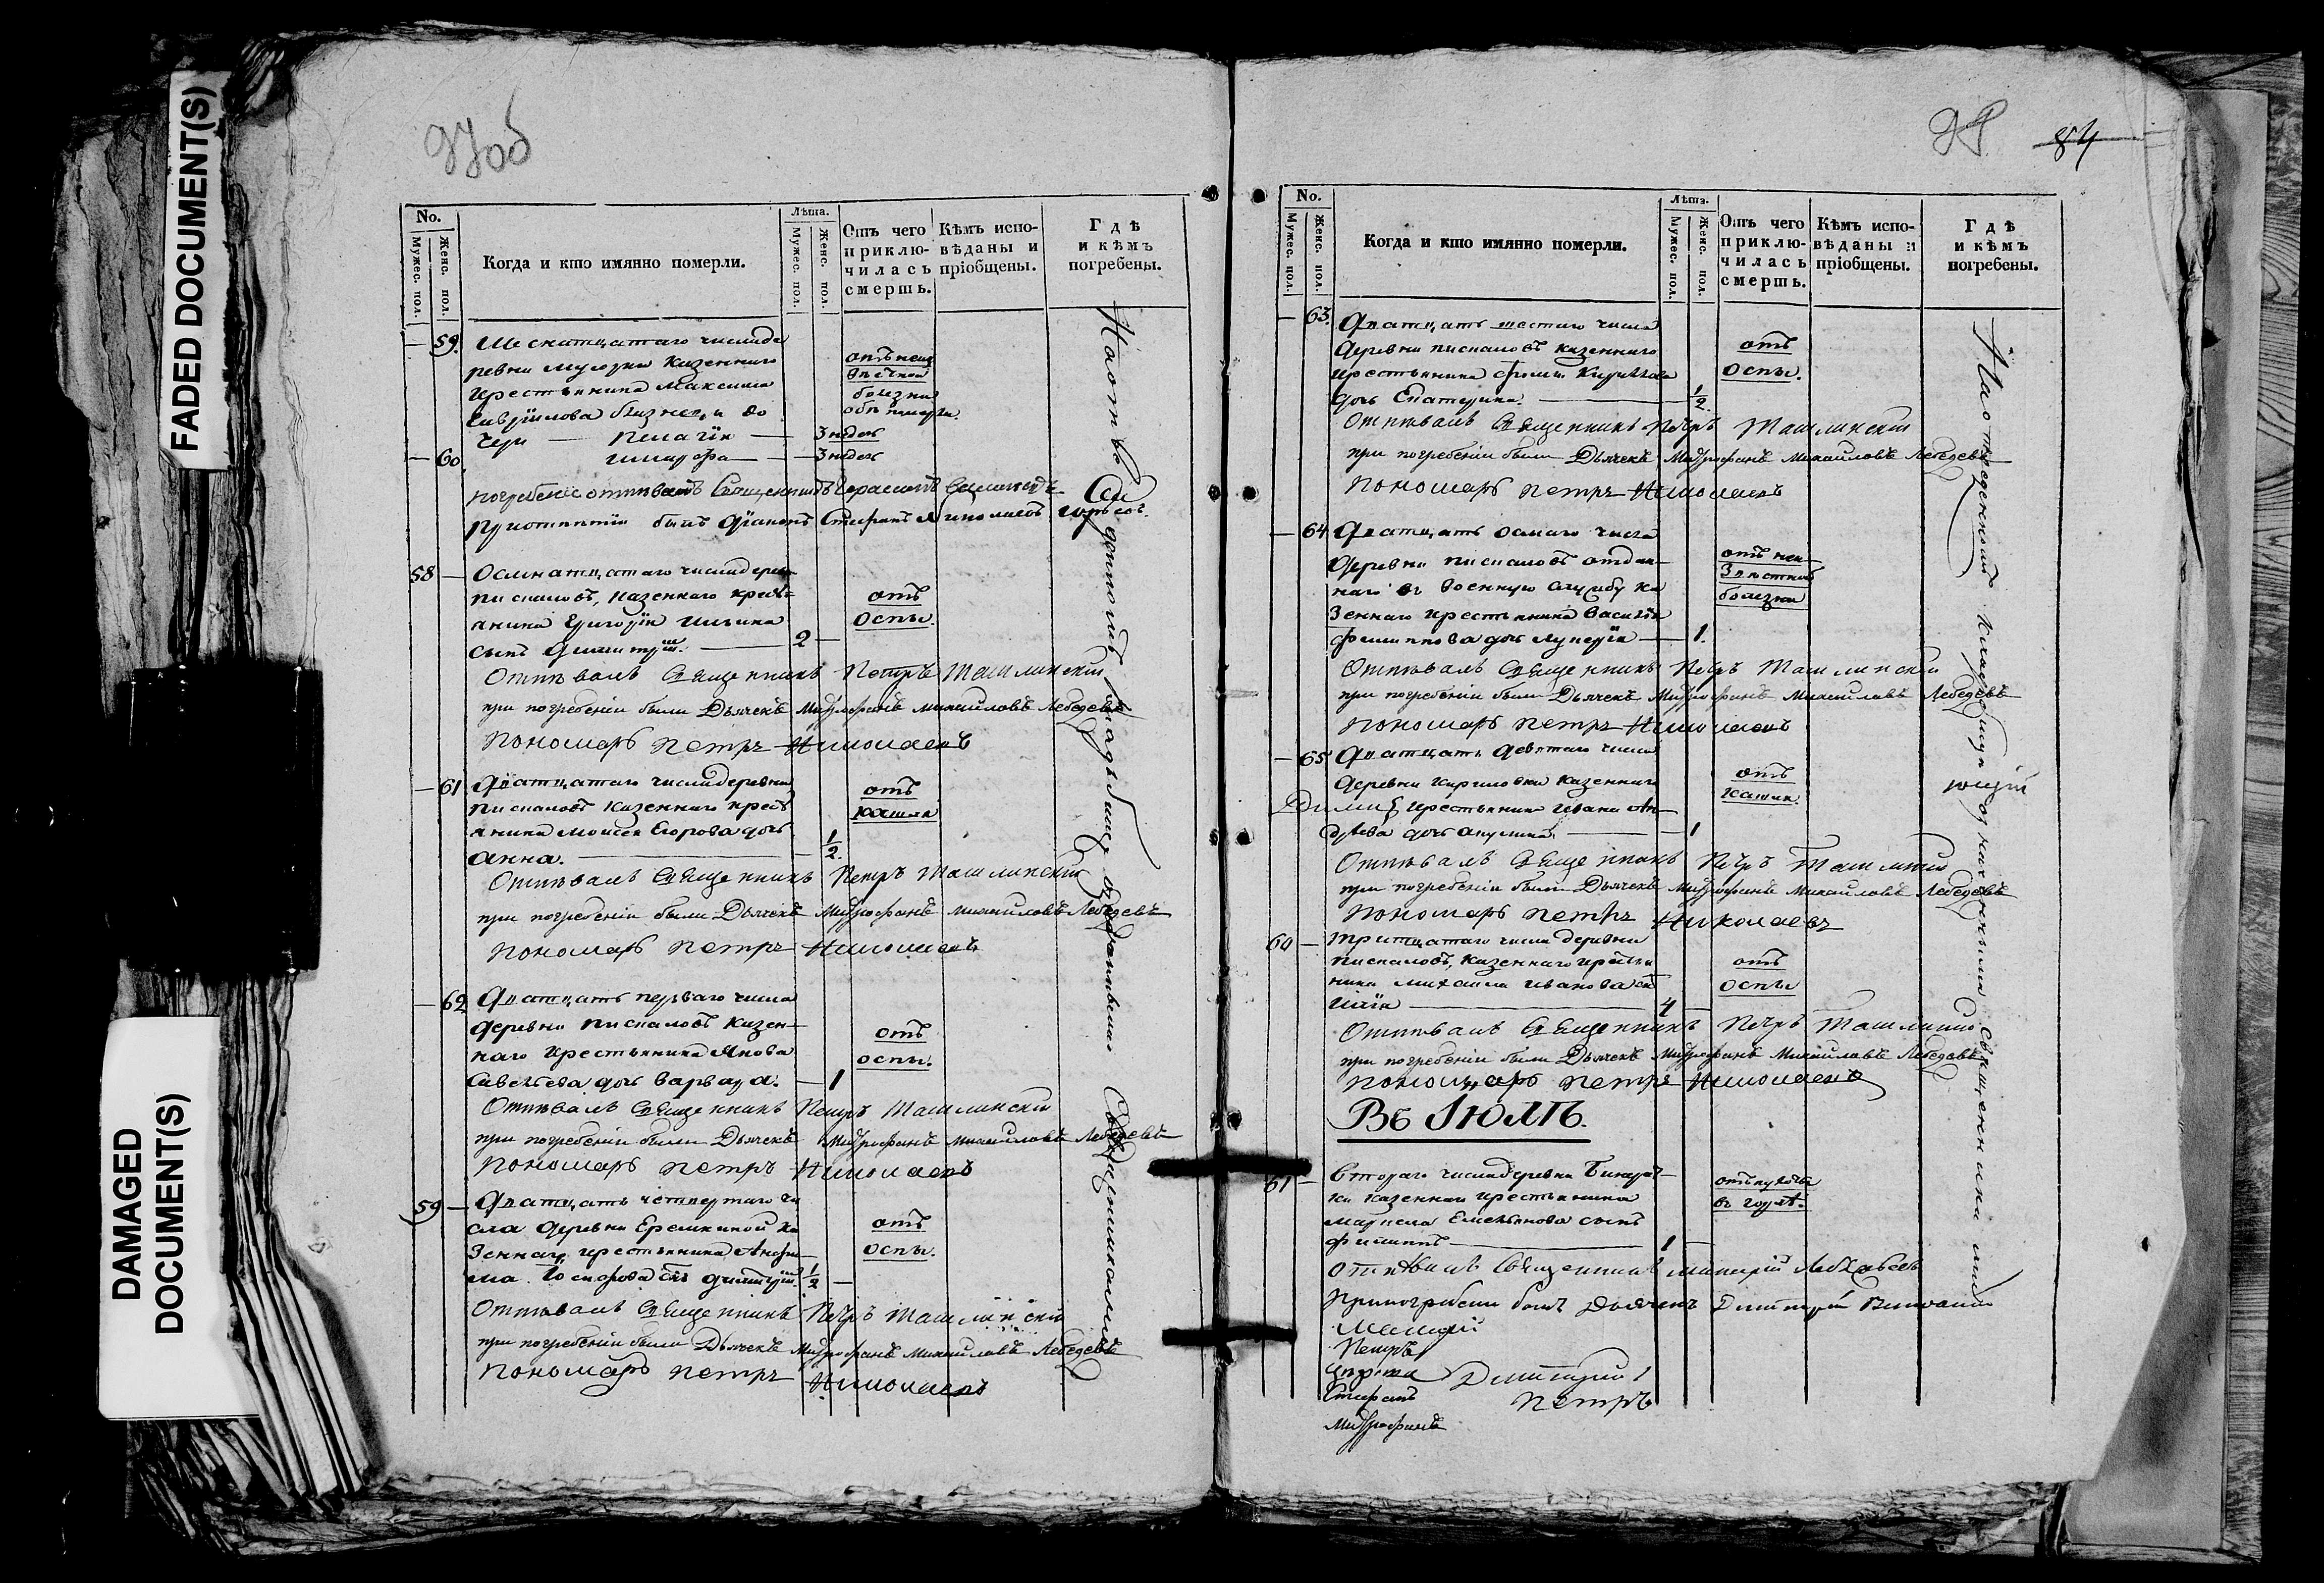 FADED DOCUMENT(S)
DAMAGED
DOCUMENT(S)
97об
No.
Мужес. пол.
Женс. пол.
Когда и кто имянно померли.
Лѣта.
Мужес. пол.
Женс. пол.
Отъ чего
приклю-
чилась
смерть.
Кѣмъ испо-
вѣданы и
пріобщены.
Гдѣ
и кѣмъ
погребены.
59. Шеснатцатаго числа де
ревни казеннаго
крестьянина Максима
Гаврилова близнецы до
чери — Пелагія — 3 недѣл
60 — 3 недѣл
болезни
погребеніе отпѣвалъ Священникъ Герасимъ
58 — Осмнатцатаго числа деревни
Пискаловъ, казеннаго кресть-
янина Григорія Ильина
сынъ Димитрій. — 2 —
отъ
оспы.
Отпѣвалъ Священникъ Петръ Ташлинскій
при погребеніи были Дьячекъ Митрофанъ Михайловъ Лебедевъ
Пономарь Петръ Николаевъ
— 61 Дватцатаго числа деревни
Пискаловъ казеннаго кресть
янина Моисея Егорова дочь
Анна. — 1/2.
отъ
кашля
Отпѣвалъ Священникъ Петръ Ташлинскій
при погребеніи были Дьячекъ Митрофанъ Михайловъ Лебедевъ
Пономарь Петръ Николаевъ
— 62 Дватцать перваго числа
деревни Пискаловъ казен-
наго крестьянина Якова
Савельева дочь Варвара. — 1
отъ
оспы.
Отпѣвалъ Священникъ Петръ Ташлинскій
при погребеніи были Дьячекъ Митрофанъ Михайловъ Лебедевъ
Пономарь Петръ Николаевъ
59 — Дватцать четвертаго чи
сла деревни Еремкиной ка
зеннаго крестьянина
Димитрій. 1/2 —
отъ
оспы.
Отпѣвалъ Священникъ Петръ Ташлинскій
при погребеніи были Дьячекъ Митрофанъ Михайловъ Лебедевъ
Пономарь Петръ Николаевъ
84
No.
Мужес. пол.
Женс. пол.
Когда и кто имянно померли.
Лѣта.
Мужес. пол.
Женс. пол.
Отъ чего
приклю-
чилась
смерть.
Кѣмъ испо-
вѣданы и
пріобщены.
Гдѣ
и кѣмъ
погребены.
— 63. Дватцать шестаго числа
деревни Пискаловъ казеннаго
крестьянина Фомы Кирилова
дочь Екатерина — 1/2.
отъ
оспы.
Отпѣвалъ Священникъ Петръ Ташлинскій
при погребеніи были Дьячекъ Митрофанъ Михайловъ Лебедевъ
Пономарь Петръ Николаевъ
— 64 Дватцать осмаго числа
деревни Пискаловъ отдан-
наго въ военную службу ка
зеннаго крестьянина Василія
Филиппова дочь Лукерія — 1.
отъ неи
звѣстной
болезни
Отпѣвалъ Священникъ Петръ Ташлинскій
при погребеніи были Дьячекъ Митрофанъ Михайловъ Лебедевъ
Пономарь Петръ Николаевъ
— 65 Дватцать девятаго числа
деревни Кириловки казеннаго
крестьянина Ивана Ан-
дрѣева дочь Акулина — 1
отъ
кашля.
Отпѣвалъ Священникъ Петръ
при погребеніи были Дьячекъ Митрофанъ Михайловъ Лебедевъ
Пономарь Петръ Николаевъ
60 — Тритцатаго числа деревни
Пискаловъ, казеннаго крестья
нина Михаила Иванова сынъ
Илія — 4 —
отъ
оспы
Отпѣвалъ Священникъ Петръ
при погребеніи были Дьячекъ Митрофанъ Михайловъ Лебедевъ
Пономарь Петръ Николаевъ
Въ Іюлѣ.
61 — Втораго числа деревни
казеннаго крестьянина
Емельянова сынъ
Филиппъ — 1 —
Отпѣвалъ Священникъ
былъ Дьячекъ Димитрій
Петръ
Стефанъ
Митрофанъ
Димитрій
Петръ